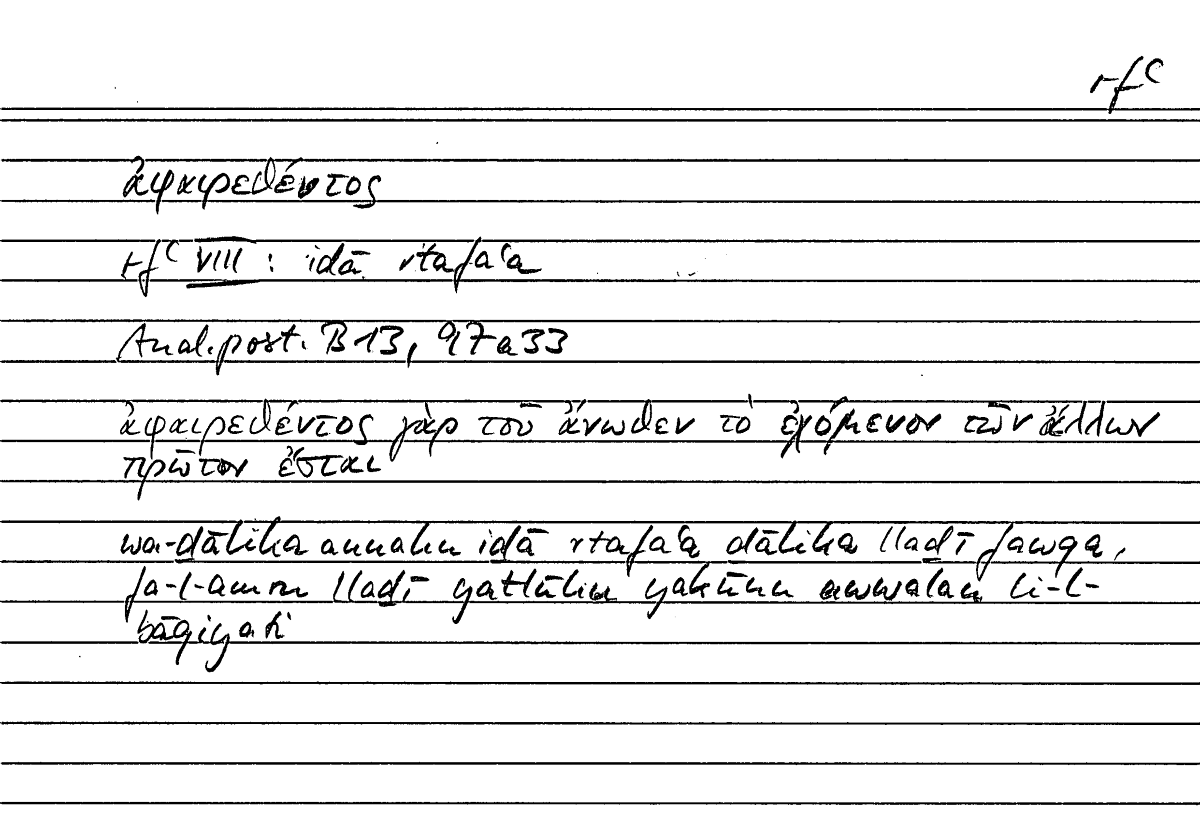 rfʿ
ἀφαιρεθέντος
rfʿ VIII : iḏā rtafaʿa
Anal. post. B 13, 97a33
ἀφαιρεθέντος γὰρ τοῦ ἄνωθεν τὸ ἐχόμενον τῶν ἄλλων
πρῶτον ἔσται
wa-ḏālika annahu iḏā rtafaʿa ḏālika llaḏī fawqa,
fa-l-amru llaḏī yatlūhu yakūnu awwalan li-l-
bāqiyati